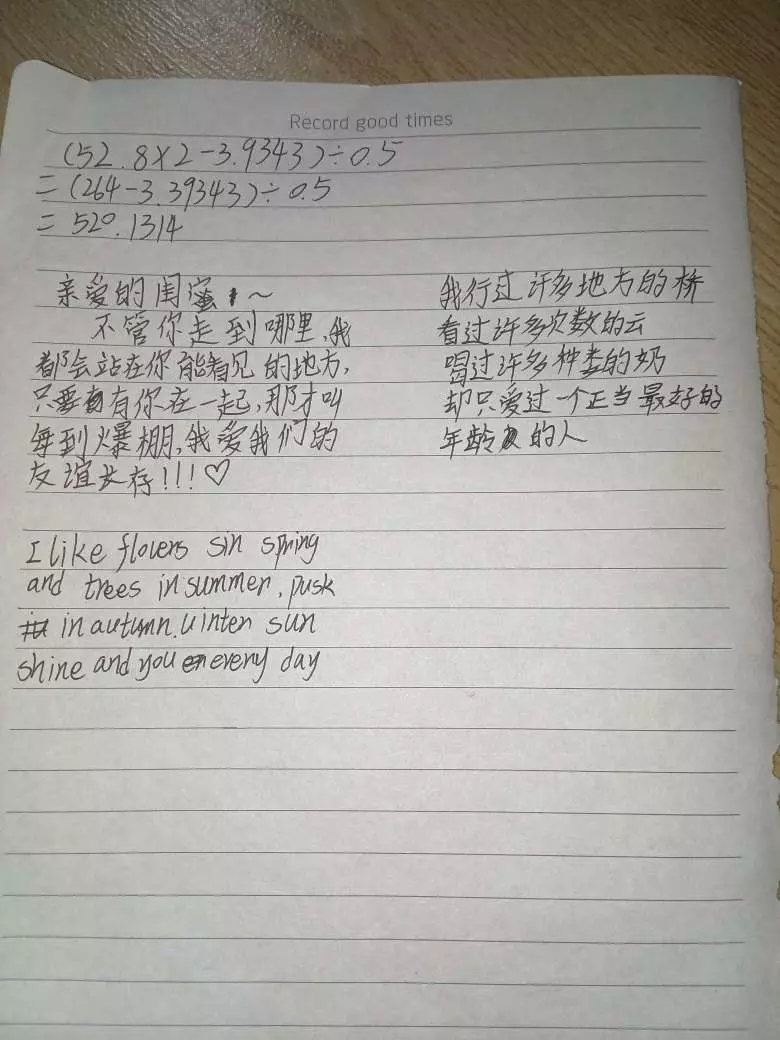 Record good times
(52.8×2-3.9343)÷0.5
=(264-3.39343)÷0.5
=520.1314
亲爱的闺蜜~
不管你走到哪里,我
都会站在你能看见的地方,
只要有你在一起,那才叫
每到爆棚,我爱我们的
友谊长存!!!♡
我行过许多地方的桥
看过许多次数的云
喝过许多种类的奶
却只爱过一个正当最好的
年龄的人
I like flovers sin spring
and trees in summer, pusk
in autumn. uinter sun
shine and you every day